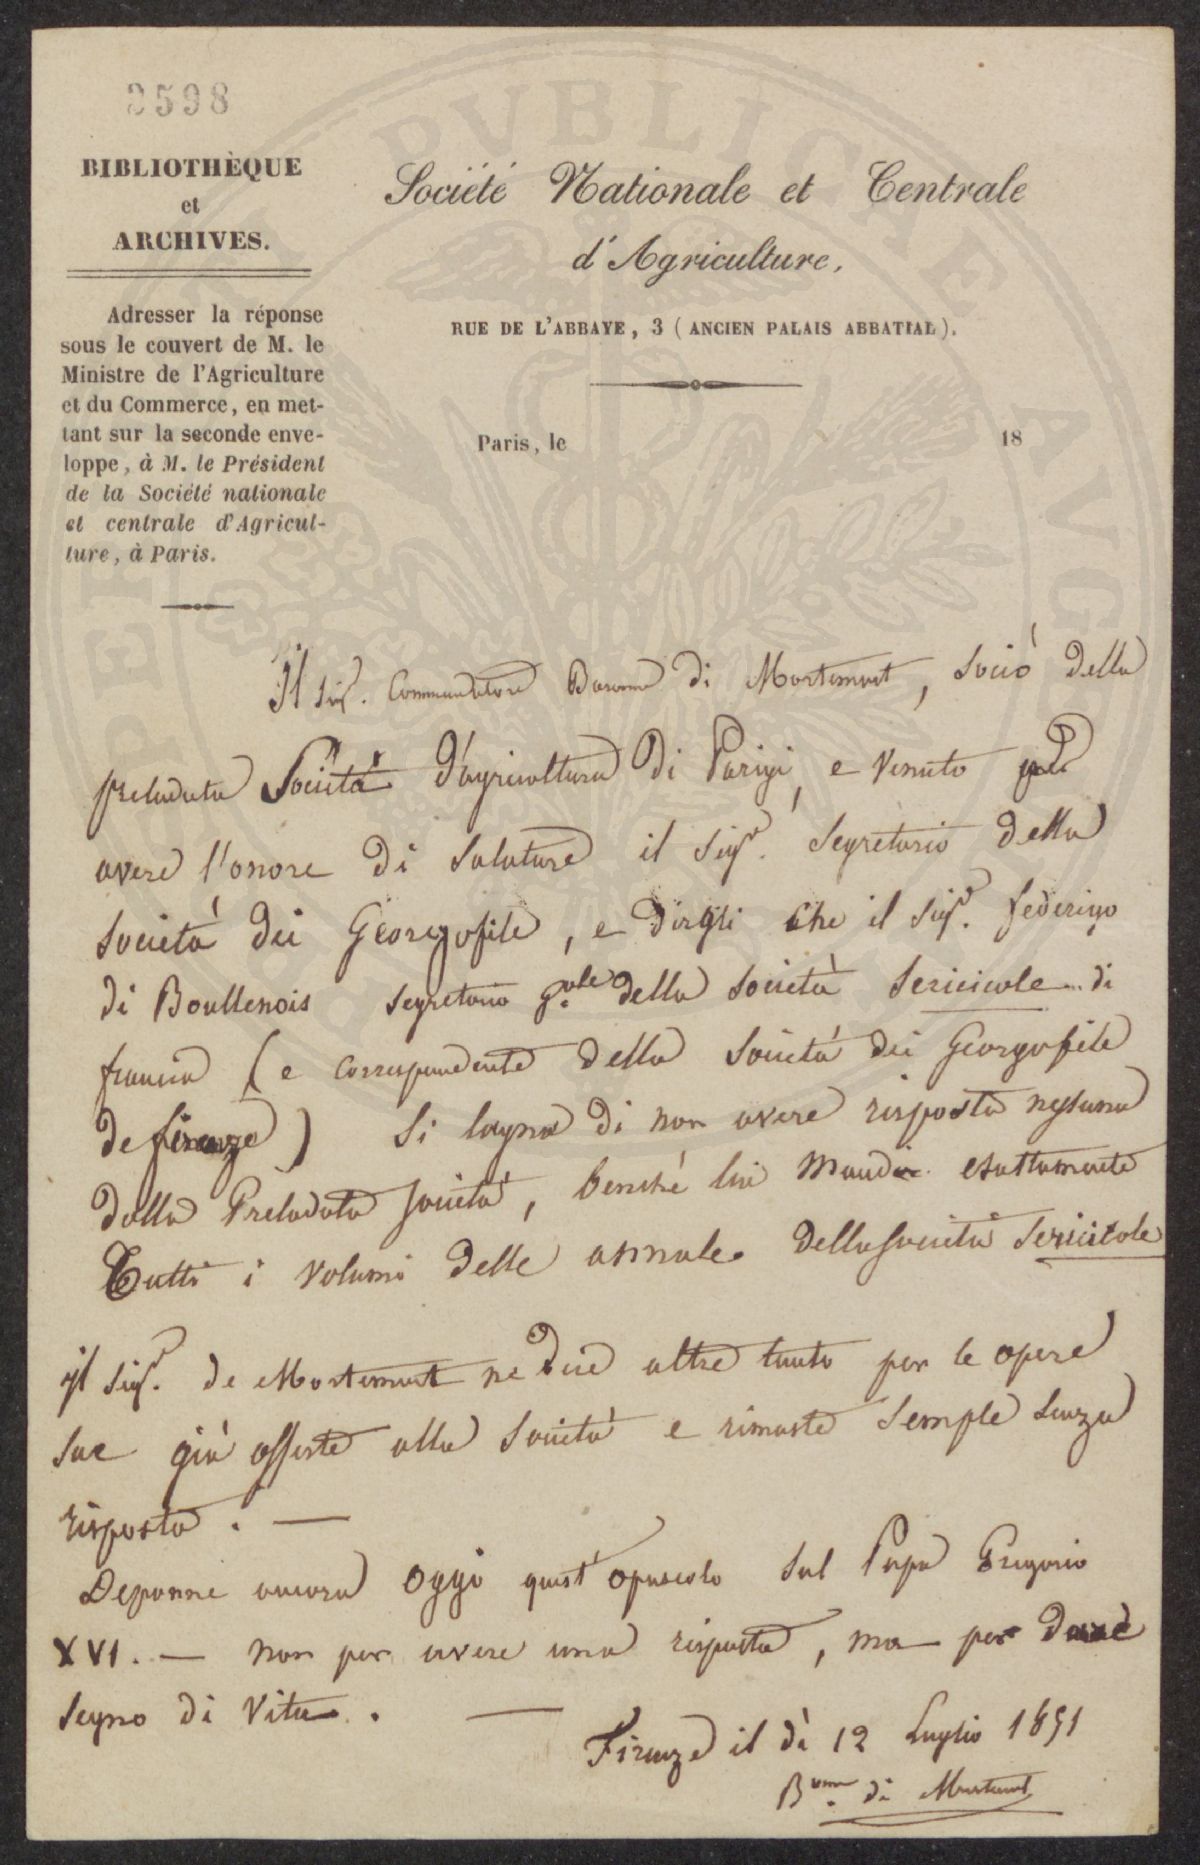 2598
BIBLIOTHÈQUE
et
ARCHIVES.
Adresser la réponse
sous le couvert de M. le
Ministre de l'Agriculture
et du Commerce, en met-
tant sur la seconde enve-
loppe, à M. le Président
de la Société nationale
et centrale d'Agricul-
ture, à Paris.
Société Nationale et Centrale
d'Agriculture.
RUE DE L'ABBAYE, 3 (ANCIEN PALAIS ABBATIAL).
Paris, le 18
Il Sigr. Commendatore Barone di Mortemart, Socio della
prelodata Società d'agricoltura di Parigi, e venuto per
avere l'onore di salutare il Sigr. Segretario della
Società dei Georgofile, e dirgli che il Sigr. federigo
di Boullenois segretario gale. della Società Sericicole di
francia (e correspondente della Società dei Georgofile
de firenze) Si lagna di non avere risposta nessuna
dalla Prelodata Società, benchè lui Mandi esattamente
Tutti i volumi delle annale della Società Sericicole
Il Sigr. de Mortemart ne dice altre tanto per le opere
sue già offerte alla Società e rimaste semple senza
risposta. —
Deponne ancora oggi quest'opuscolo sul Papa Gregorio
XVI. — non per avere una risposta, ma per dare
segno di vita. —
Firenze il dì 12 Luglio 1851
Bone. di Mortemart
PUBLICAE
AVG